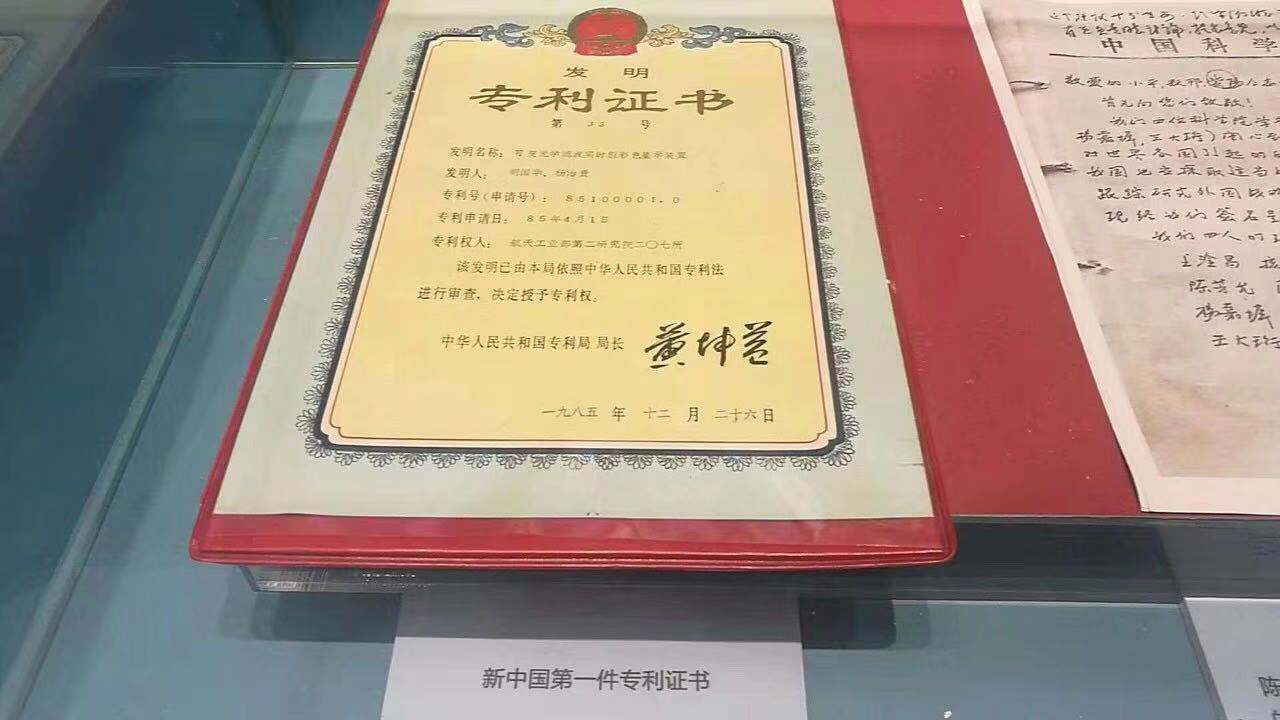 发明
专利证书
第 33 号
发明名称：可变光学滤波实时假彩色显示装置
发明人：胡国华、杨治贵
专利号(申请号)：85100001.0
专利申请日：85年4月1日
专利权人：航天工业部第二研究院二〇七所
该发明已由本局依照中华人民共和国专利法
进行审查，决定授予专利权。
中华人民共和国专利局 局长 黄坤益
一九八五 年 十二 月 二十六日
新中国第一件专利证书
中国科学
敬爱的小平
首先向您们致敬！
我们四位科学院学
杨嘉墀、王大珩）关心
对世界各国引起的
我国也应采取适当
跟踪研究外国战
现经我们签名
我们四人的
王淦昌
陈芳允
杨嘉墀
王大珩
陈